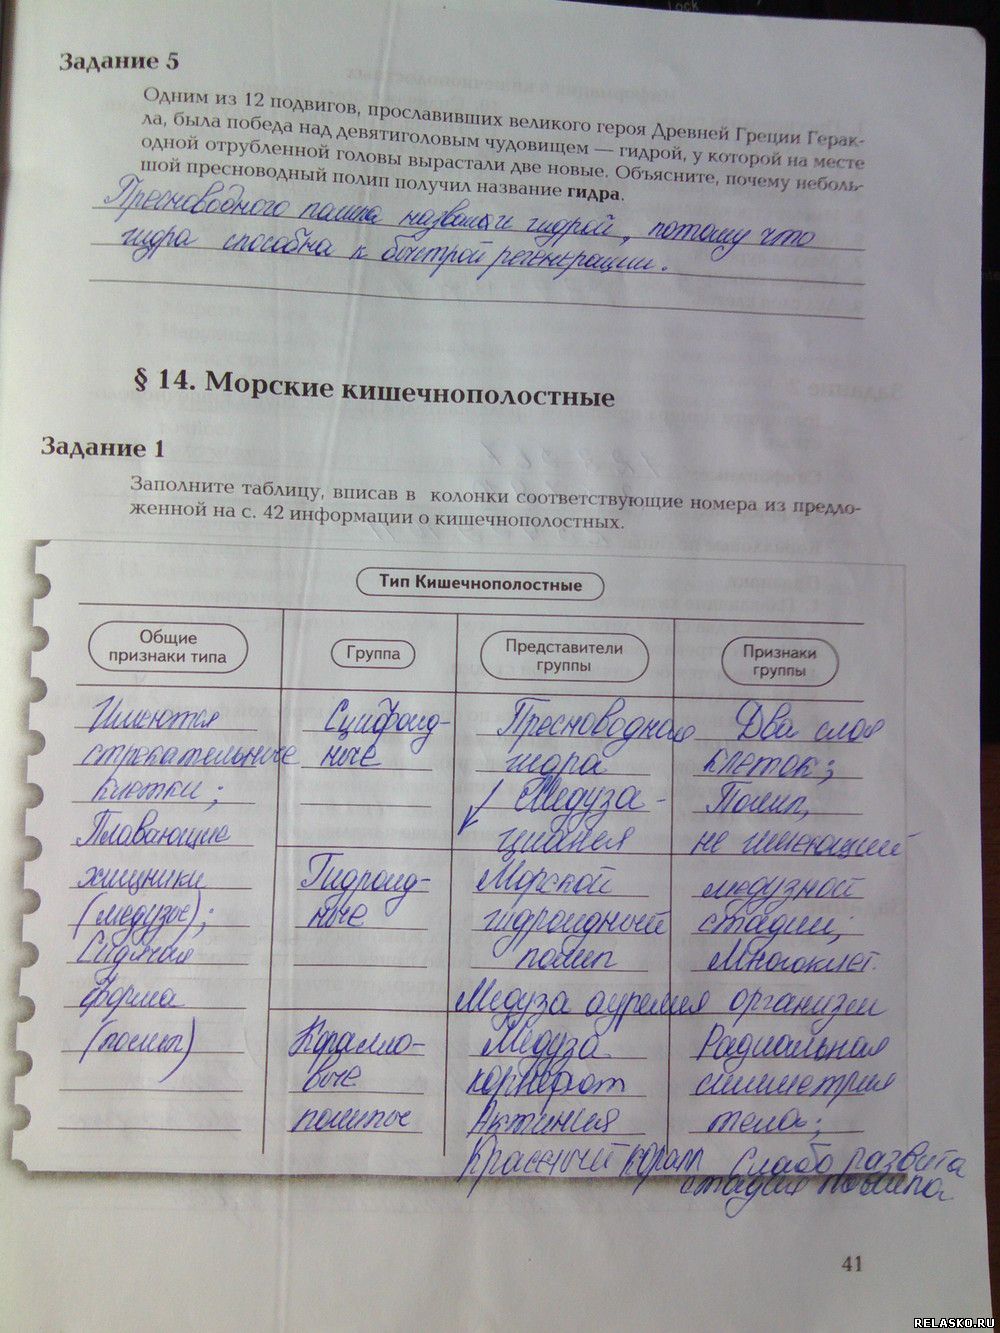 Lock
Задание 5
Одним из 12 подвигов, прославивших великого героя Древней Греции Герак-
ла, была победа над девятиголовым чудовищем — гидрой, у которой на месте
одной отрубленной головы вырастали две новые. Объясните, почему неболь-
шой пресноводный полип получил название гидра.
Пресноводного полипа назвали гидрой, потому что
гидра способна к быстрой регенерации.
§ 14. Морские кишечнополостные
Задание 1
Заполните таблицу, вписав в колонки соответствующие номера из предло-
женной на с. 42 информации о кишечнополостных.
Тип Кишечнополостные
Общие
признаки типа
Группа
Представители
группы
Признаки
группы
Имеются
стрекательные
клетки;
Плавающие
хищники
(медузы);
Сидячая
форма
(полип)
Сцифоид-
ные
Гидроид-
ные
Коралло-
вые
полипы
Пресноводная
гидра
Медуза-
цианея
Морской
гидроидный
полип
Медуза аурелия
Медуза
корнерот
Актиния
Красный коралл
Два слоя
клеток;
Полип,
не имеющий
медузной
стадии;
Многоклет.
организм
Радиальная
симметрия
тела;
Слабо развита
стадия полипа
41
RELASKO.RU